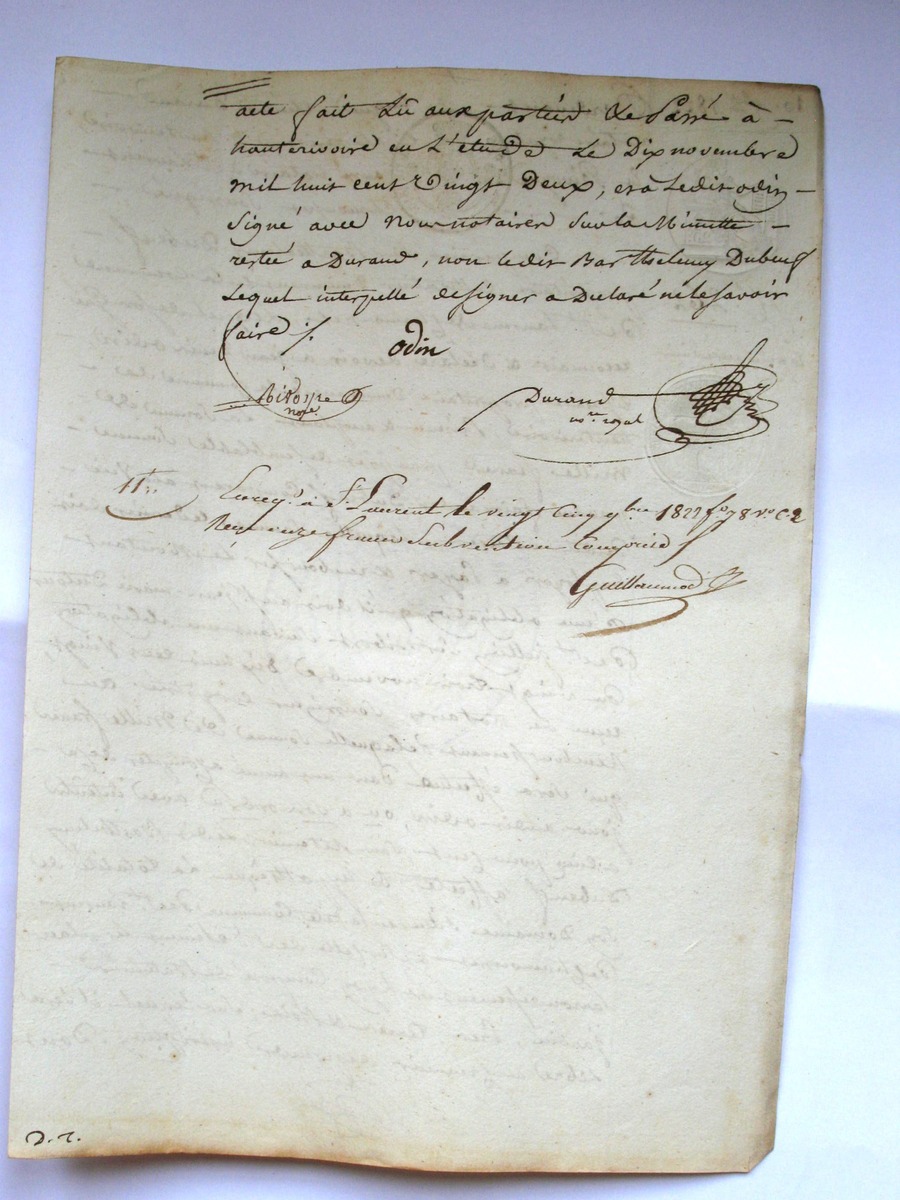 acte fait lû aux parties & Passé à
hauterivoire en L'etude Le Dix novembre
mil huit cent Vingt Deux, et à Ledit odin
Signé avec Nous notaires Sur la Minutte
restée a Durand, non ledit Barthelemy Dubeuf
Lequel interpellé de signer a Declaré ne le savoir
faire ./.
odin
nore.
Durand
nre royal
11f
Enregé. à St Laurent le vingt Cinq 9bre 1822 fo. 78 Vo. C. 2
Reçu onze francs Subvention Comprise
Guillaumod
D. r.